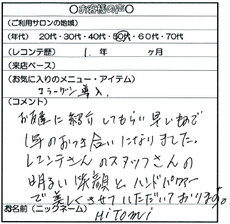 ○お客様の声○
(ご利用サロンの地域)
(年代) 20代・30代・40代・50代・60代・70代
(レコンテ歴) 1.年 ヶ月
(来店ペース)
(お気に入りのメニュー・アイテム)
コラーゲン導入.
(コメント)
お陰に紹介してもらい早いもので
1年のおつき合いになりました。
レコンテさんのスタッフさんの
明るい笑顔とハンドパワー
で美しくさせていただいております。
お名前(ニックネーム) HITOMI